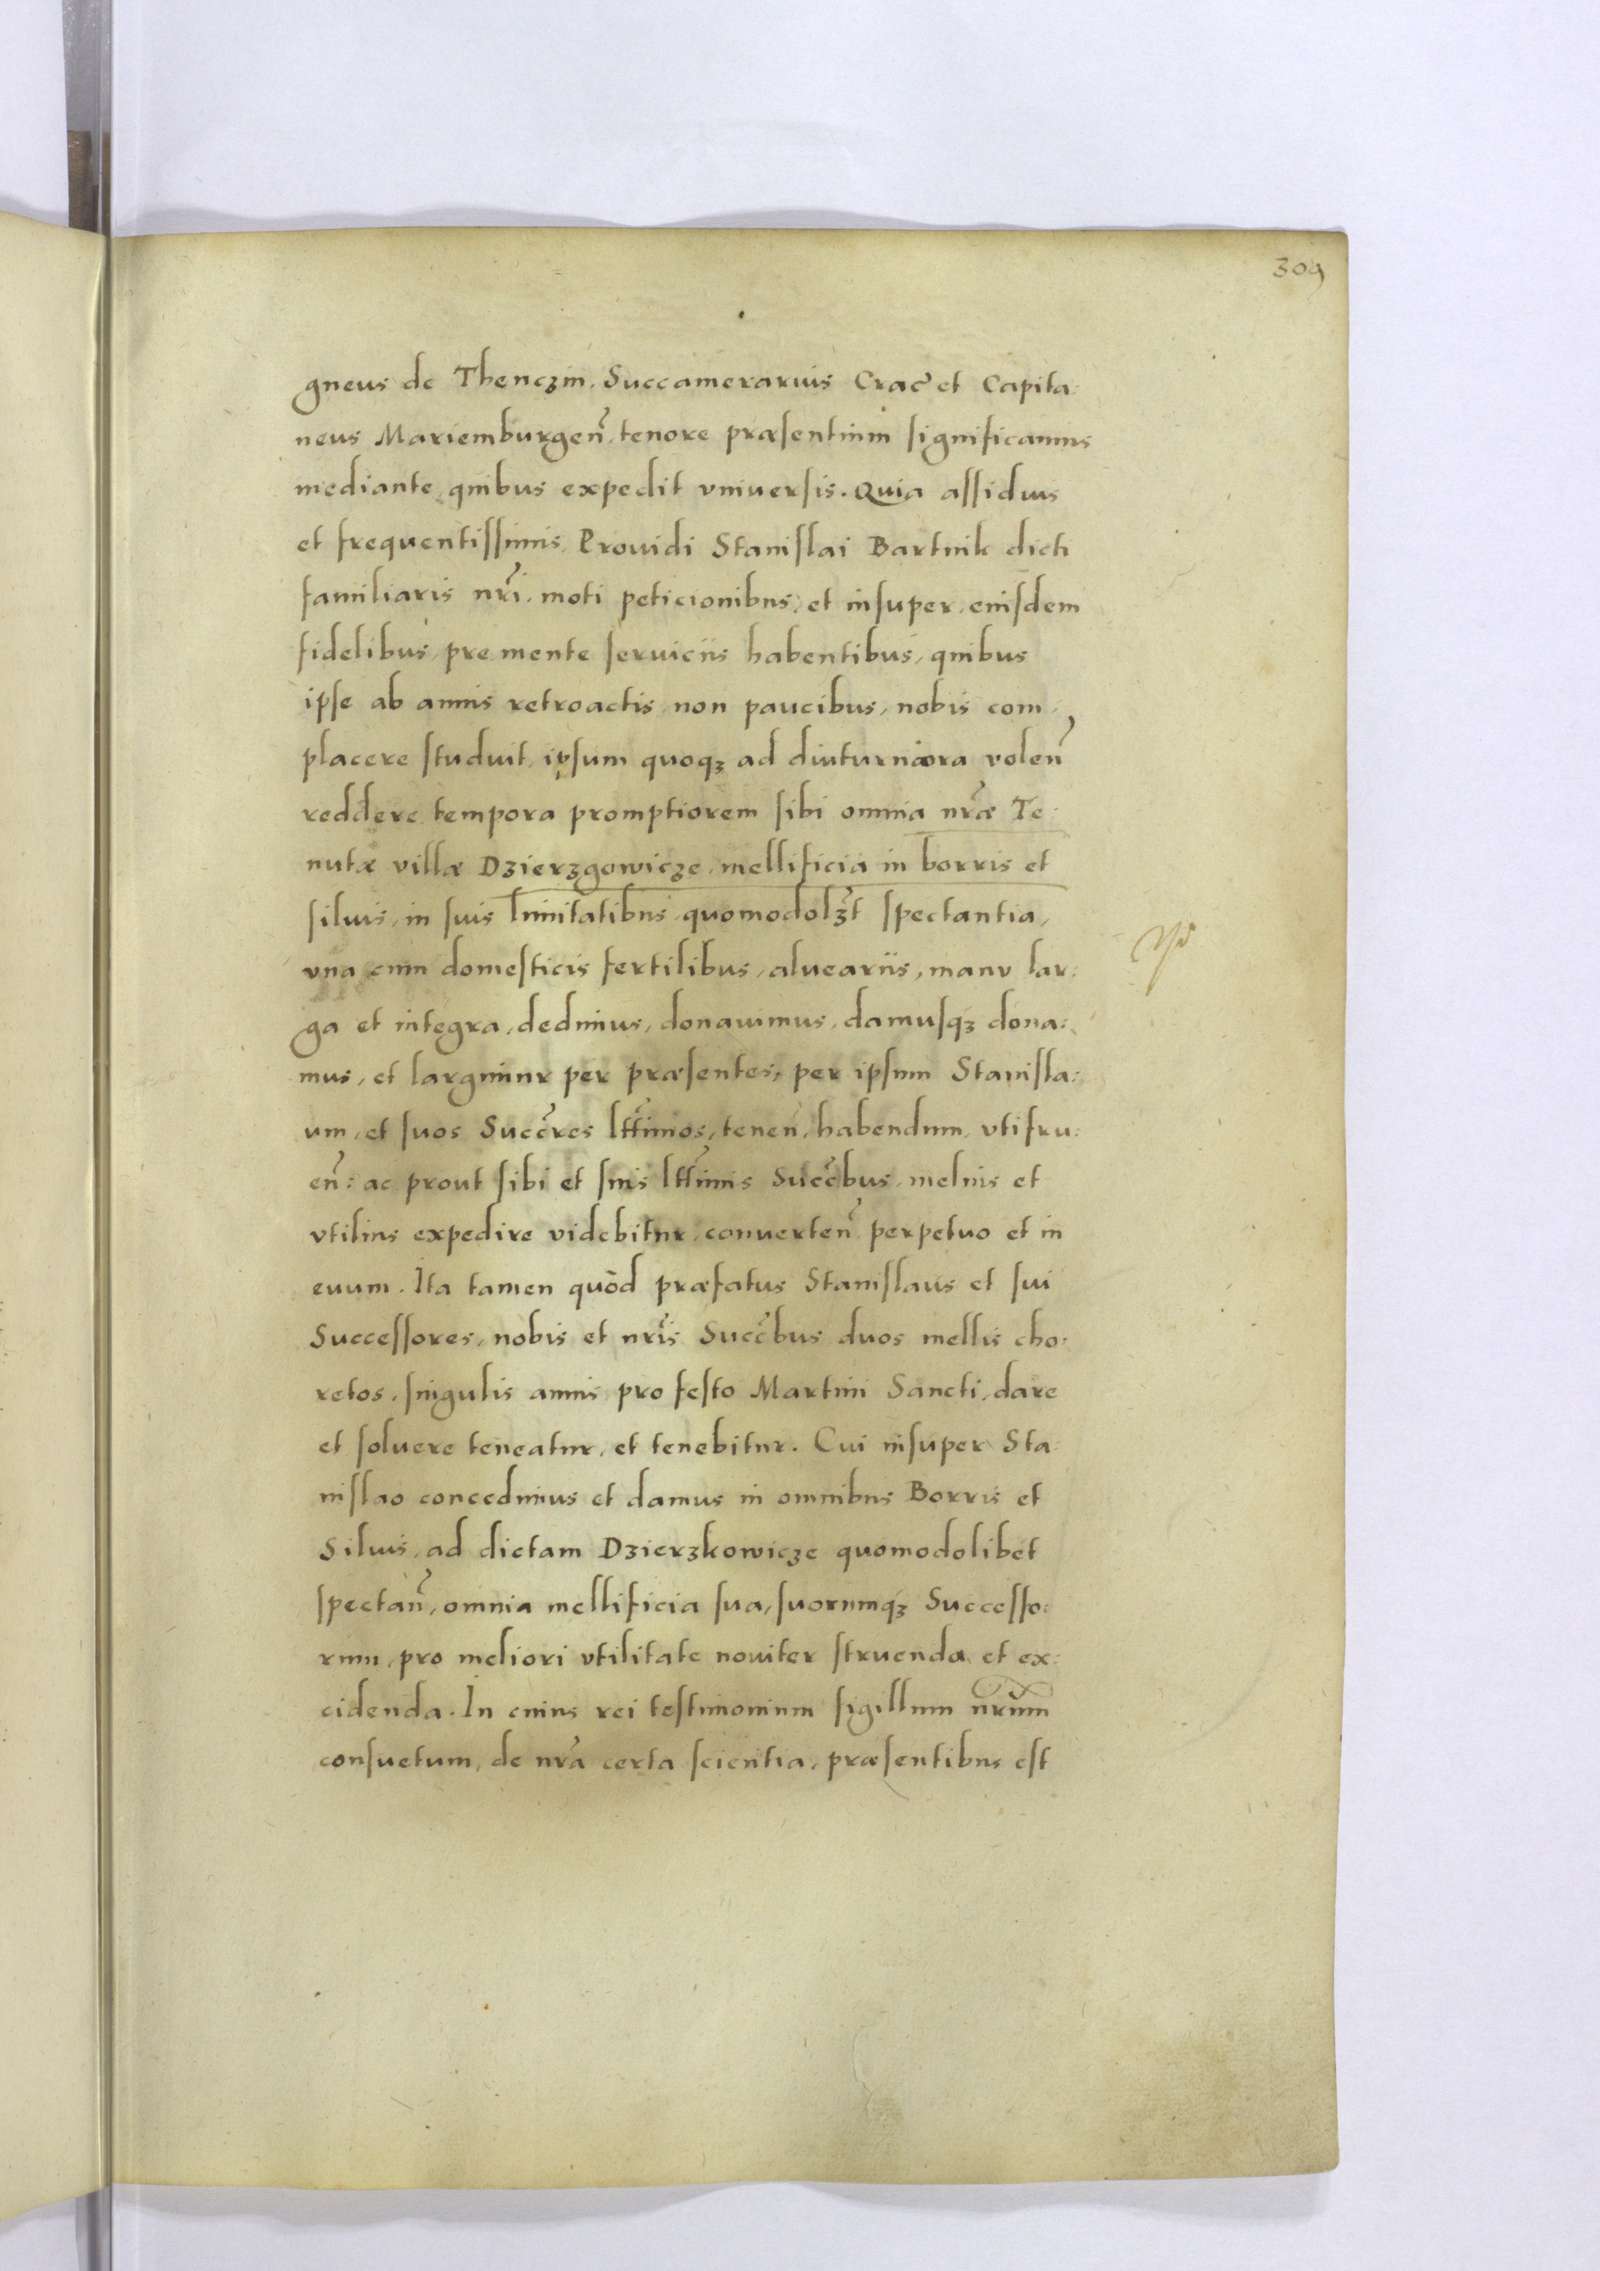 309
gneus de Thenczin. Succamerarius Crac̃ et Capita:
neus Mariemburgeñ, tenore præsentium significamus
mediante, quibus expedit vniuersis. Quia assiduis
et frequentissimis, Prouidi Stanislai Bartnik dicti
familiaris nr̃i, moti peticionibus, et insuper, eiusdem
fidelibus, pre mente seruiciis habentibus, quibus
ipse ab annis retroactis, non paucibus, nobis com,
placere studuit, ipsum quoqȝ ad diuturniora voleñ
reddere tempora promptiorem sibi omnia nr̃æ Te:
nutæ villæ Dzierzgowicze, mellificia in borris et
siluis, in suis limitatibus, quomodolȝt spectantia,
vna cum domesticis fertilibus, alueariis, manu lar:
ga et integra, dedimus, donauimus, damusqȝ dona:
mus, et largimur per præsentes, per ipsum Stanisla:
um, et suos Succr̃es ltt̃imos, teneñ, habendum, vtifru:
eñ: ac prout sibi et suis ltt̃imis Succ̃bus, melius et
vtilius expedire videbitur, conuerteñ, perpetuo et in
euum. Ita tamen quòd præfatus Stanislaus et sui
Successores, nobis et nr̃is Succ̃bus duos mellis cho:
retos, singulis annis pro festo Martini Sancti, dare
et soluere teneatur, et tenebitur. Cui insuper Sta:
nislao concedimus et damus in omnibus Borris et
Siluis, ad dictam Dzierzkowicze quomodolibet
spectañ, omnia mellificia sua, suorumqȝ Successo:
rum, pro meliori vtilitate nouiter struenda et ex:
cidenda. In cuius rei testimonium sigillum nr̃um
consuetum, de nr̃a certa scientia, præsentibus est